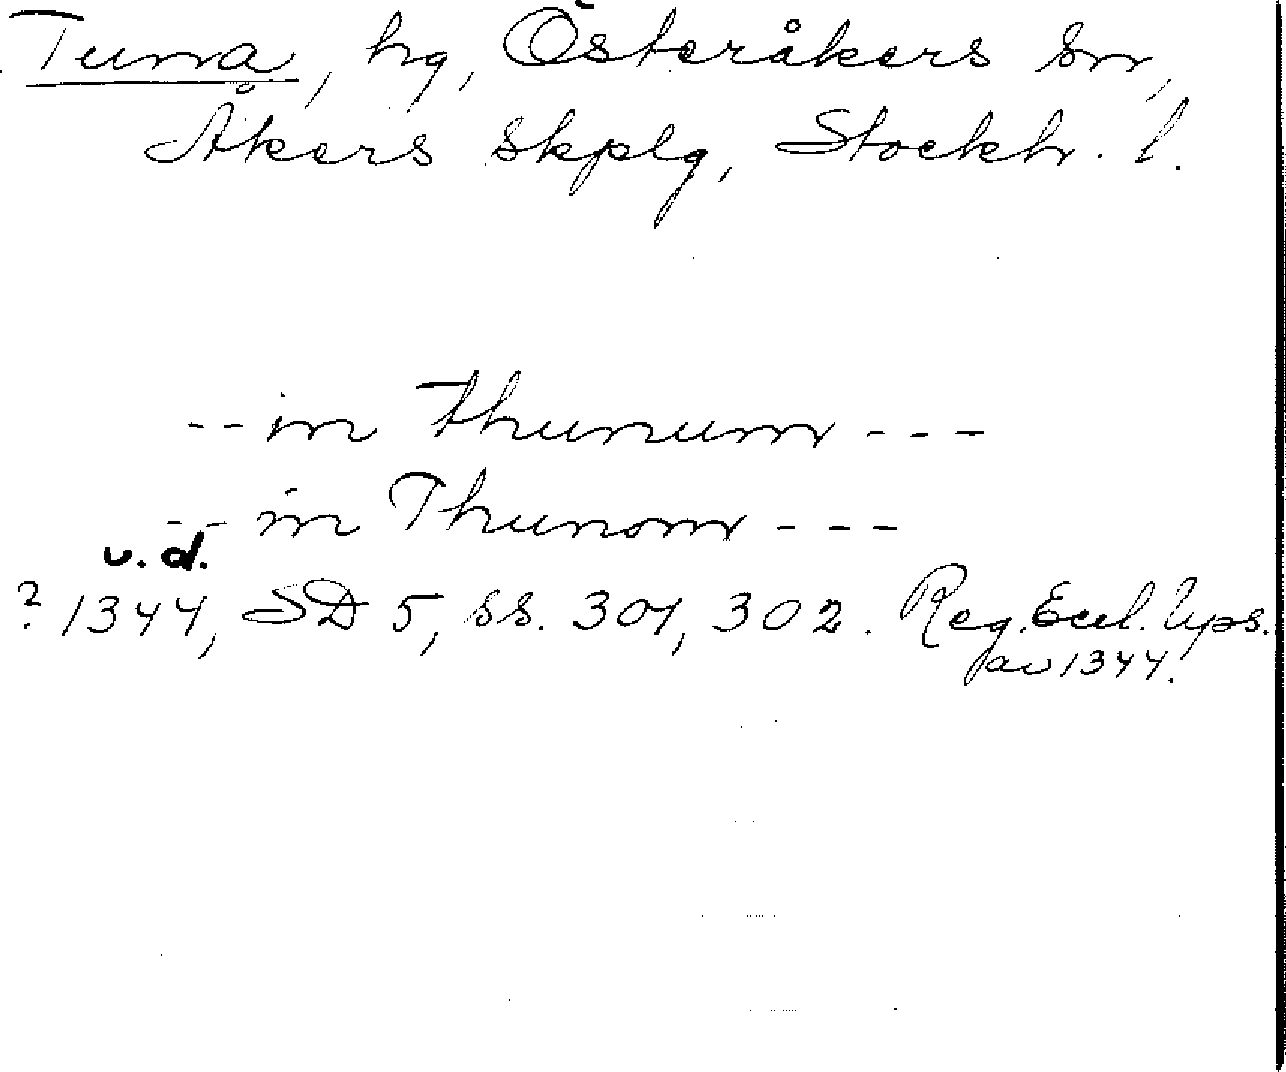 Tuna, hg, Österåkers sn,
Åkers skplg, Stockh. l.
-- in thunum ---
-- in Thunom ---
u. d.
? 1344, SD 5, ss. 301, 302. Reg. Eccl. Ups.
av 1344.